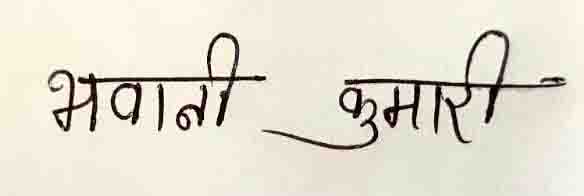 भवानी कुमारी